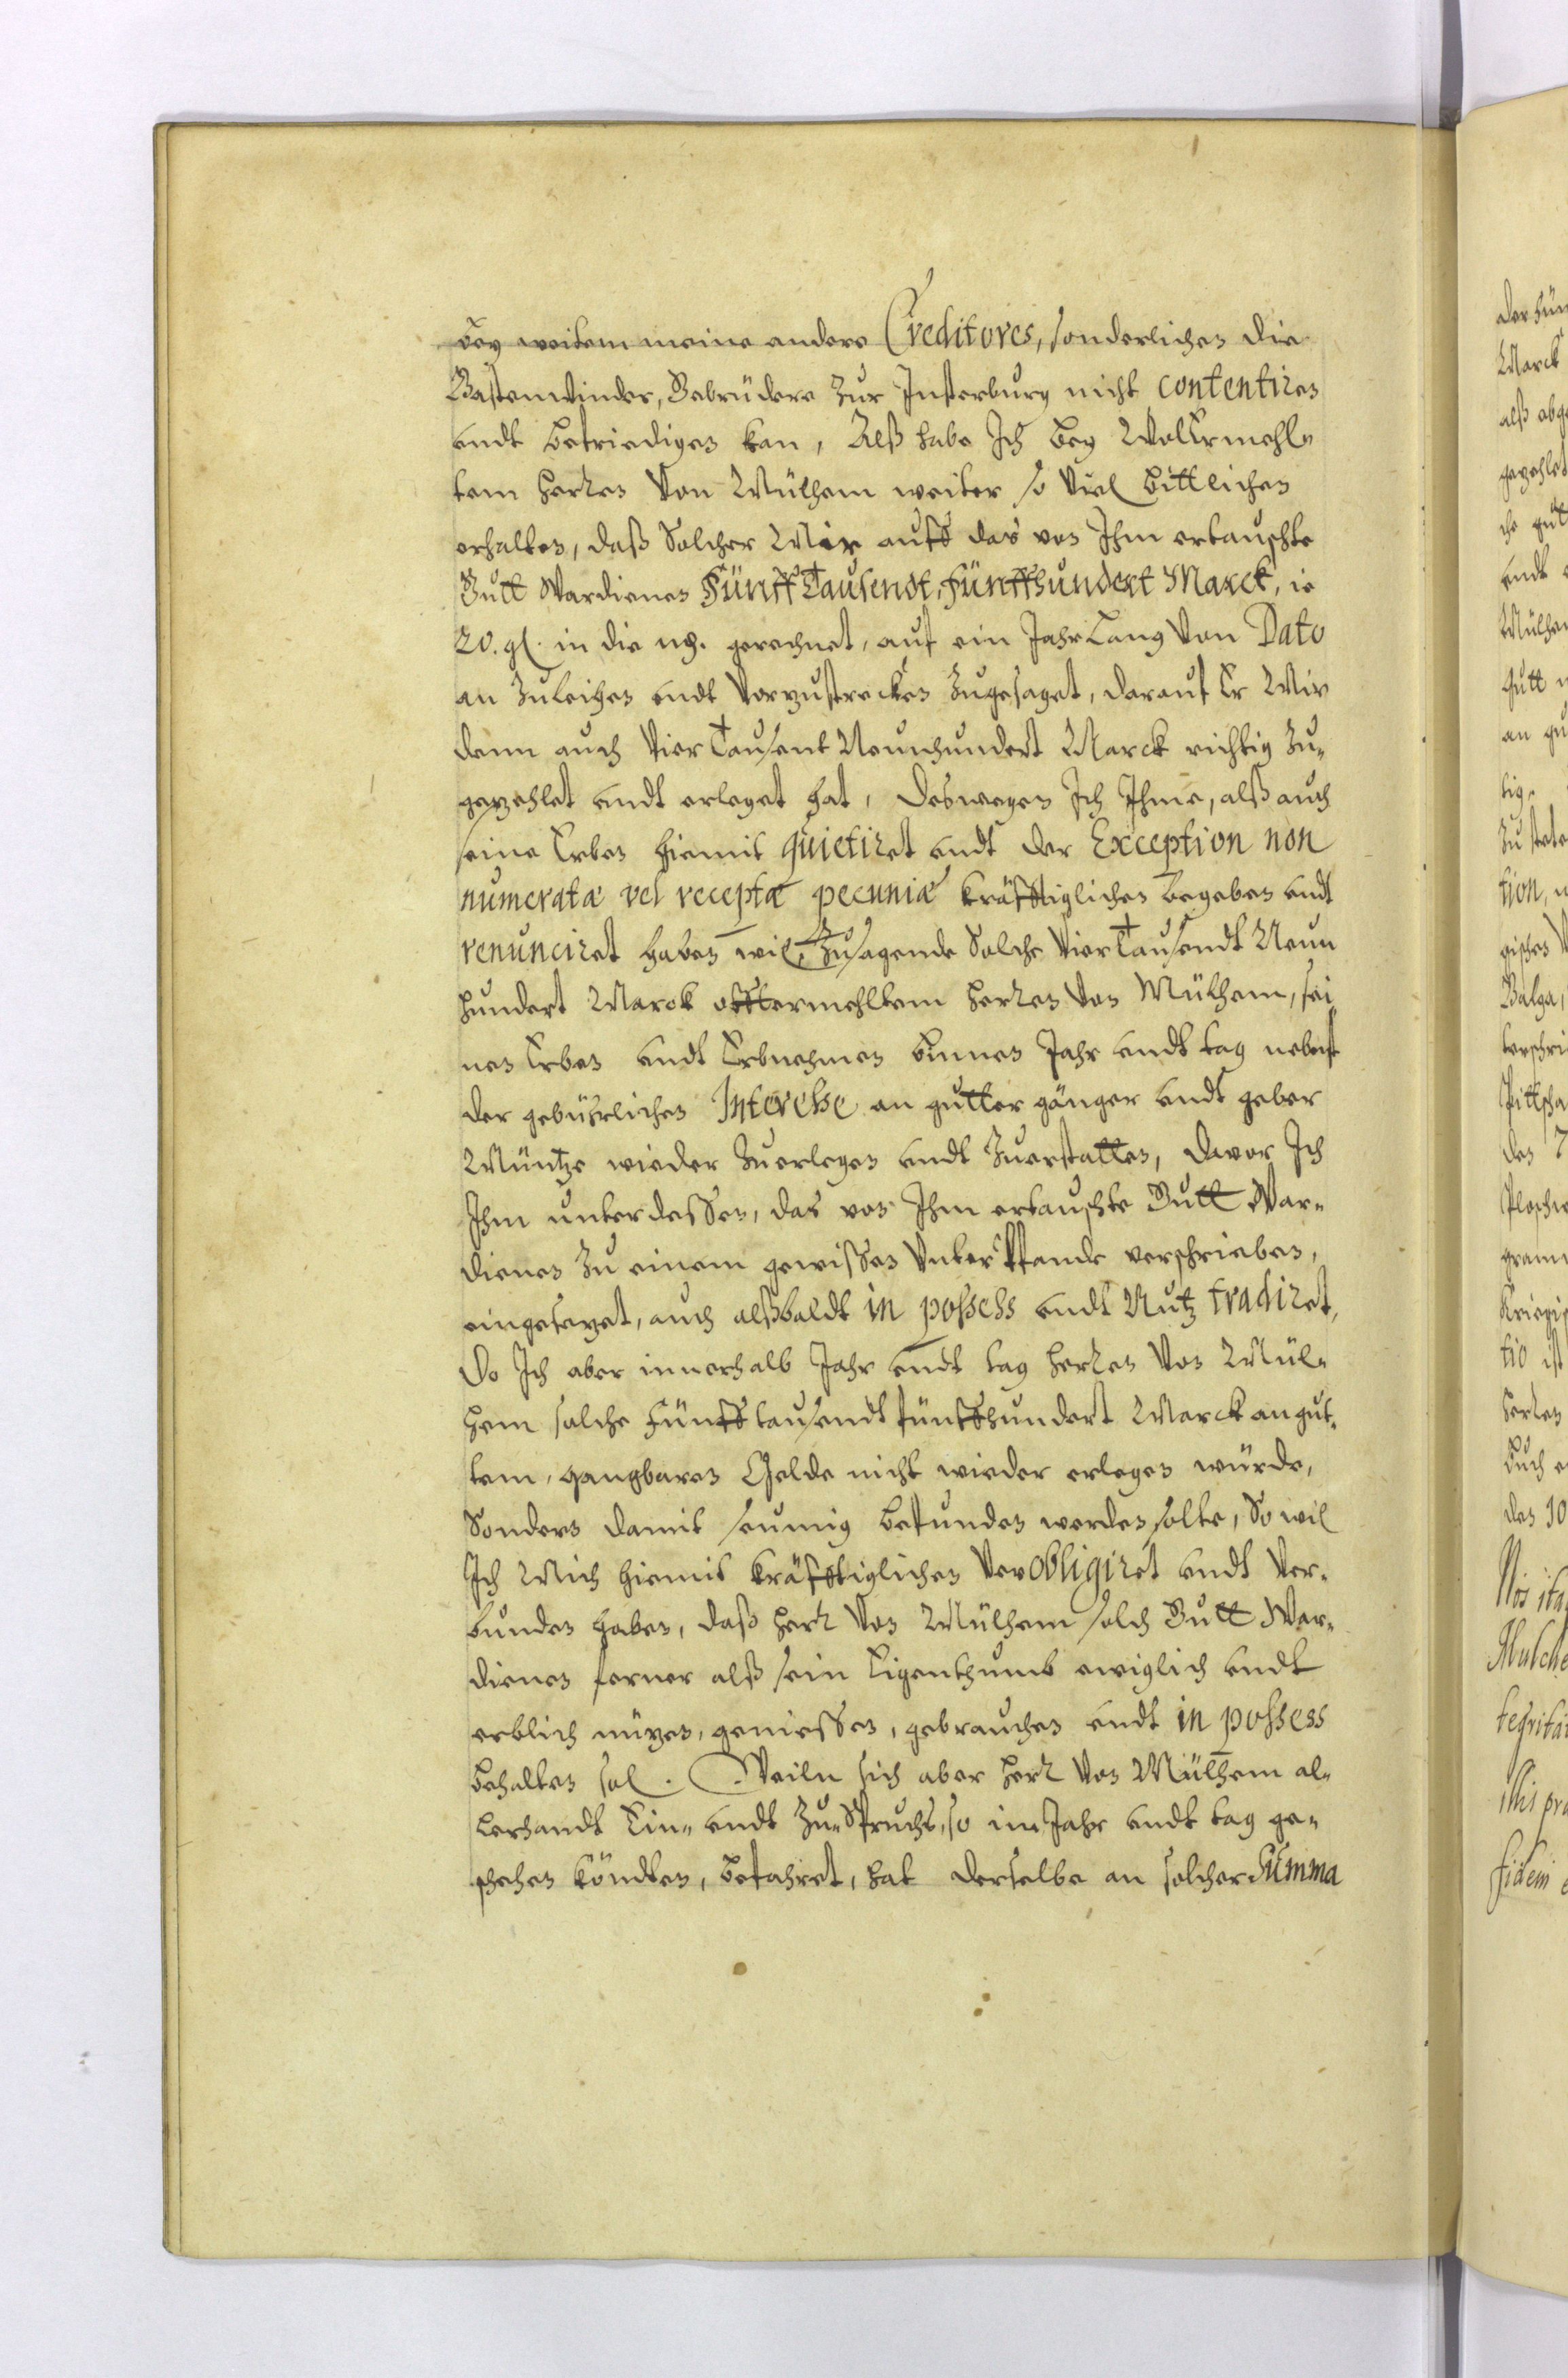 bey weitem meine andere Creditores, sonderlichen die
Gastenwinder, Gebrüdere zur Insterburg nicht contentiren
undt befriedigen kan, Alß habe Ich bey Wolermehl-
tem Herren Von Mülhem weiter so viel bittlichen
erhalten, daß Solcher Mir auff das von Ihm ertauschte
Gutt Wardienen Fünff Tausendt, Fünffhundert Marck, ie
20. gl. in die mg. gerechnet, auf ein Jahrlang Von Dato
an Zuleihen undt Vorzustrecken Zugesaget, darauf Er Mir
denn auch Vier Tausent Neunhundert Marck richtig Zu-
gezehlet undt erleget hat, Deswegen Ich Ihme, alß auch
seine Erben hiemit quietiret undt der Exception non
numeratæ vel receptæ pecuniæ kräfftiglichen begeben undt
renunciret haben wil, Zusagende Solche Vier Tausendt Neun
hundert Marck offtermehltem Herren Von Mülhem, sei
nen Erben undt Erbnehmen binnen Jahr undt tag nebenst
der gebührlichen Interesse an gutter gänger undt geber
Müntze wieder Zuerlegen undt Zuerstatten, Davor Ich
Ihm unterdessen, das von Ihm ertauschte Gutt War-
dienen Zu einem gewissen Unterpfande verschrieben,
eingesezet, auch alßbaldt in possess undt Nutz tradiret,
Do Ich aber innerhalb Jahr undt tag Herren Von Mül-
hem solche Fünfftausendt fünffhundert Marck an gut-
tem, gangbaren Gelde nicht wieder erlegen würde,
Sondern damit seumig befunden werden solte, So wil
Ich Mich hiemit kräfftiglichen Verobligiret undt Ver-
bunden haben, daß Herr Von Mülhem solch Gutt War-
dienen ferner alß sein Eigenthumb ewiglich undt
erblich nüzen, geniessen, gebrauchen undt in possess
behalten sol. Weiln sich aber Herr Von Mülhem al-
lerhandt Ein- undt Zu-Spruchs, so im Jahr undt tag ge-
schehen köndten, befahret, hat derselbe an solcher Summa